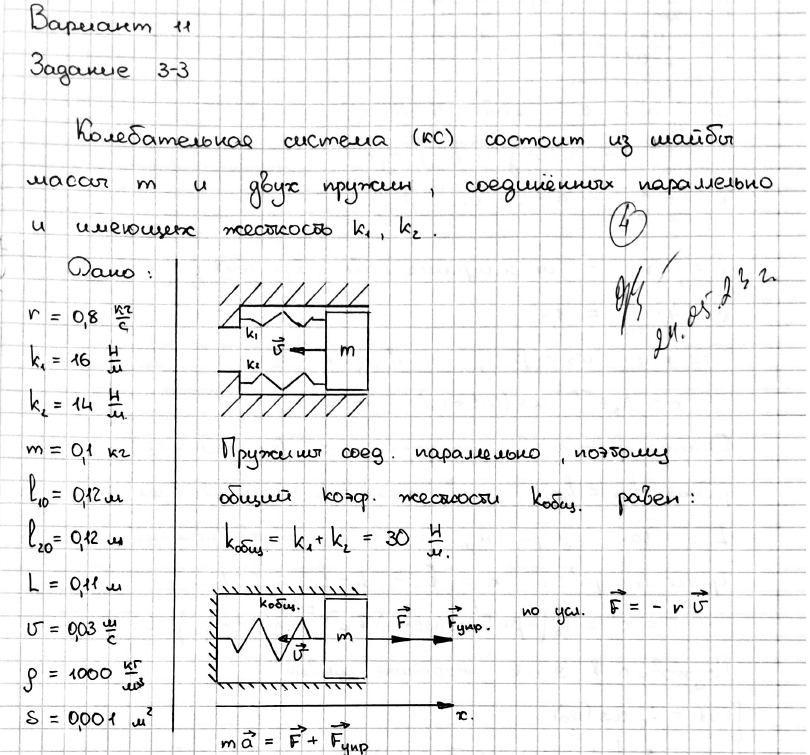 Вариант 11
Задание 3-3
Колебательная система (КС) состоит из шайбы
массы m и двух пружин, соединённых параллельно
и имеющих жесткость k₁, k₂.
4
24.05.23 г.
Дано:
r = 0,8 кг/с
k₁ = 16 Н/м
k₂ = 14 Н/м
m = 0,1 кг
l₁₀ = 0,12 м
l₂₀ = 0,12 м
L = 0,11 м
v = 0,03 м/с
ρ = 1000 кг/м³
S = 0,001 м²
k₁
v⃗
m
k₂
Пружины соед. параллельно, поэтому
общий коэф. жесткости kобщ. равен:
kобщ. = k₁ + k₂ = 30 Н/м.
kобщ.
v⃗
m
F⃗
F⃗упр.
x.
по усл. F⃗ = - r v⃗
m a⃗ = F⃗ + F⃗упр